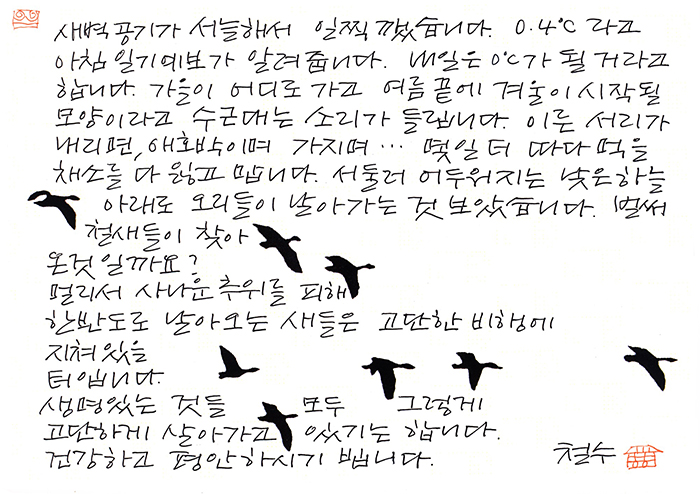 새벽 공기가 서늘해서 일찍 깼습니다. 0.4℃ 라고
아침 일기예보가 알려줍니다. 내일은 0℃가 될 거라고
합니다. 가을이 어디로 가고 여름 끝에 겨울이 시작될
모양이라고 수군대는 소리가 들립니다. 이른 서리가
내리면, 애호박이며 가지며… 몇일 더 따다 먹을
채소를 다 잃고 맙니다. 서둘러 어두워지는 낮은 하늘
아래로 오리들이 날아가는 것 보았습니다. 벌써
철새들이 찾아
온것일까요?
멀리서 사나운 추위를 피해
한반도로 날아오는 새들은 고단한 비행에
지쳐있을
터입니다.
생명있는 것들 모두 그렇게
고단하게 살아가고 있기는 합니다.
건강하고 평안하시기 빕니다. 철수